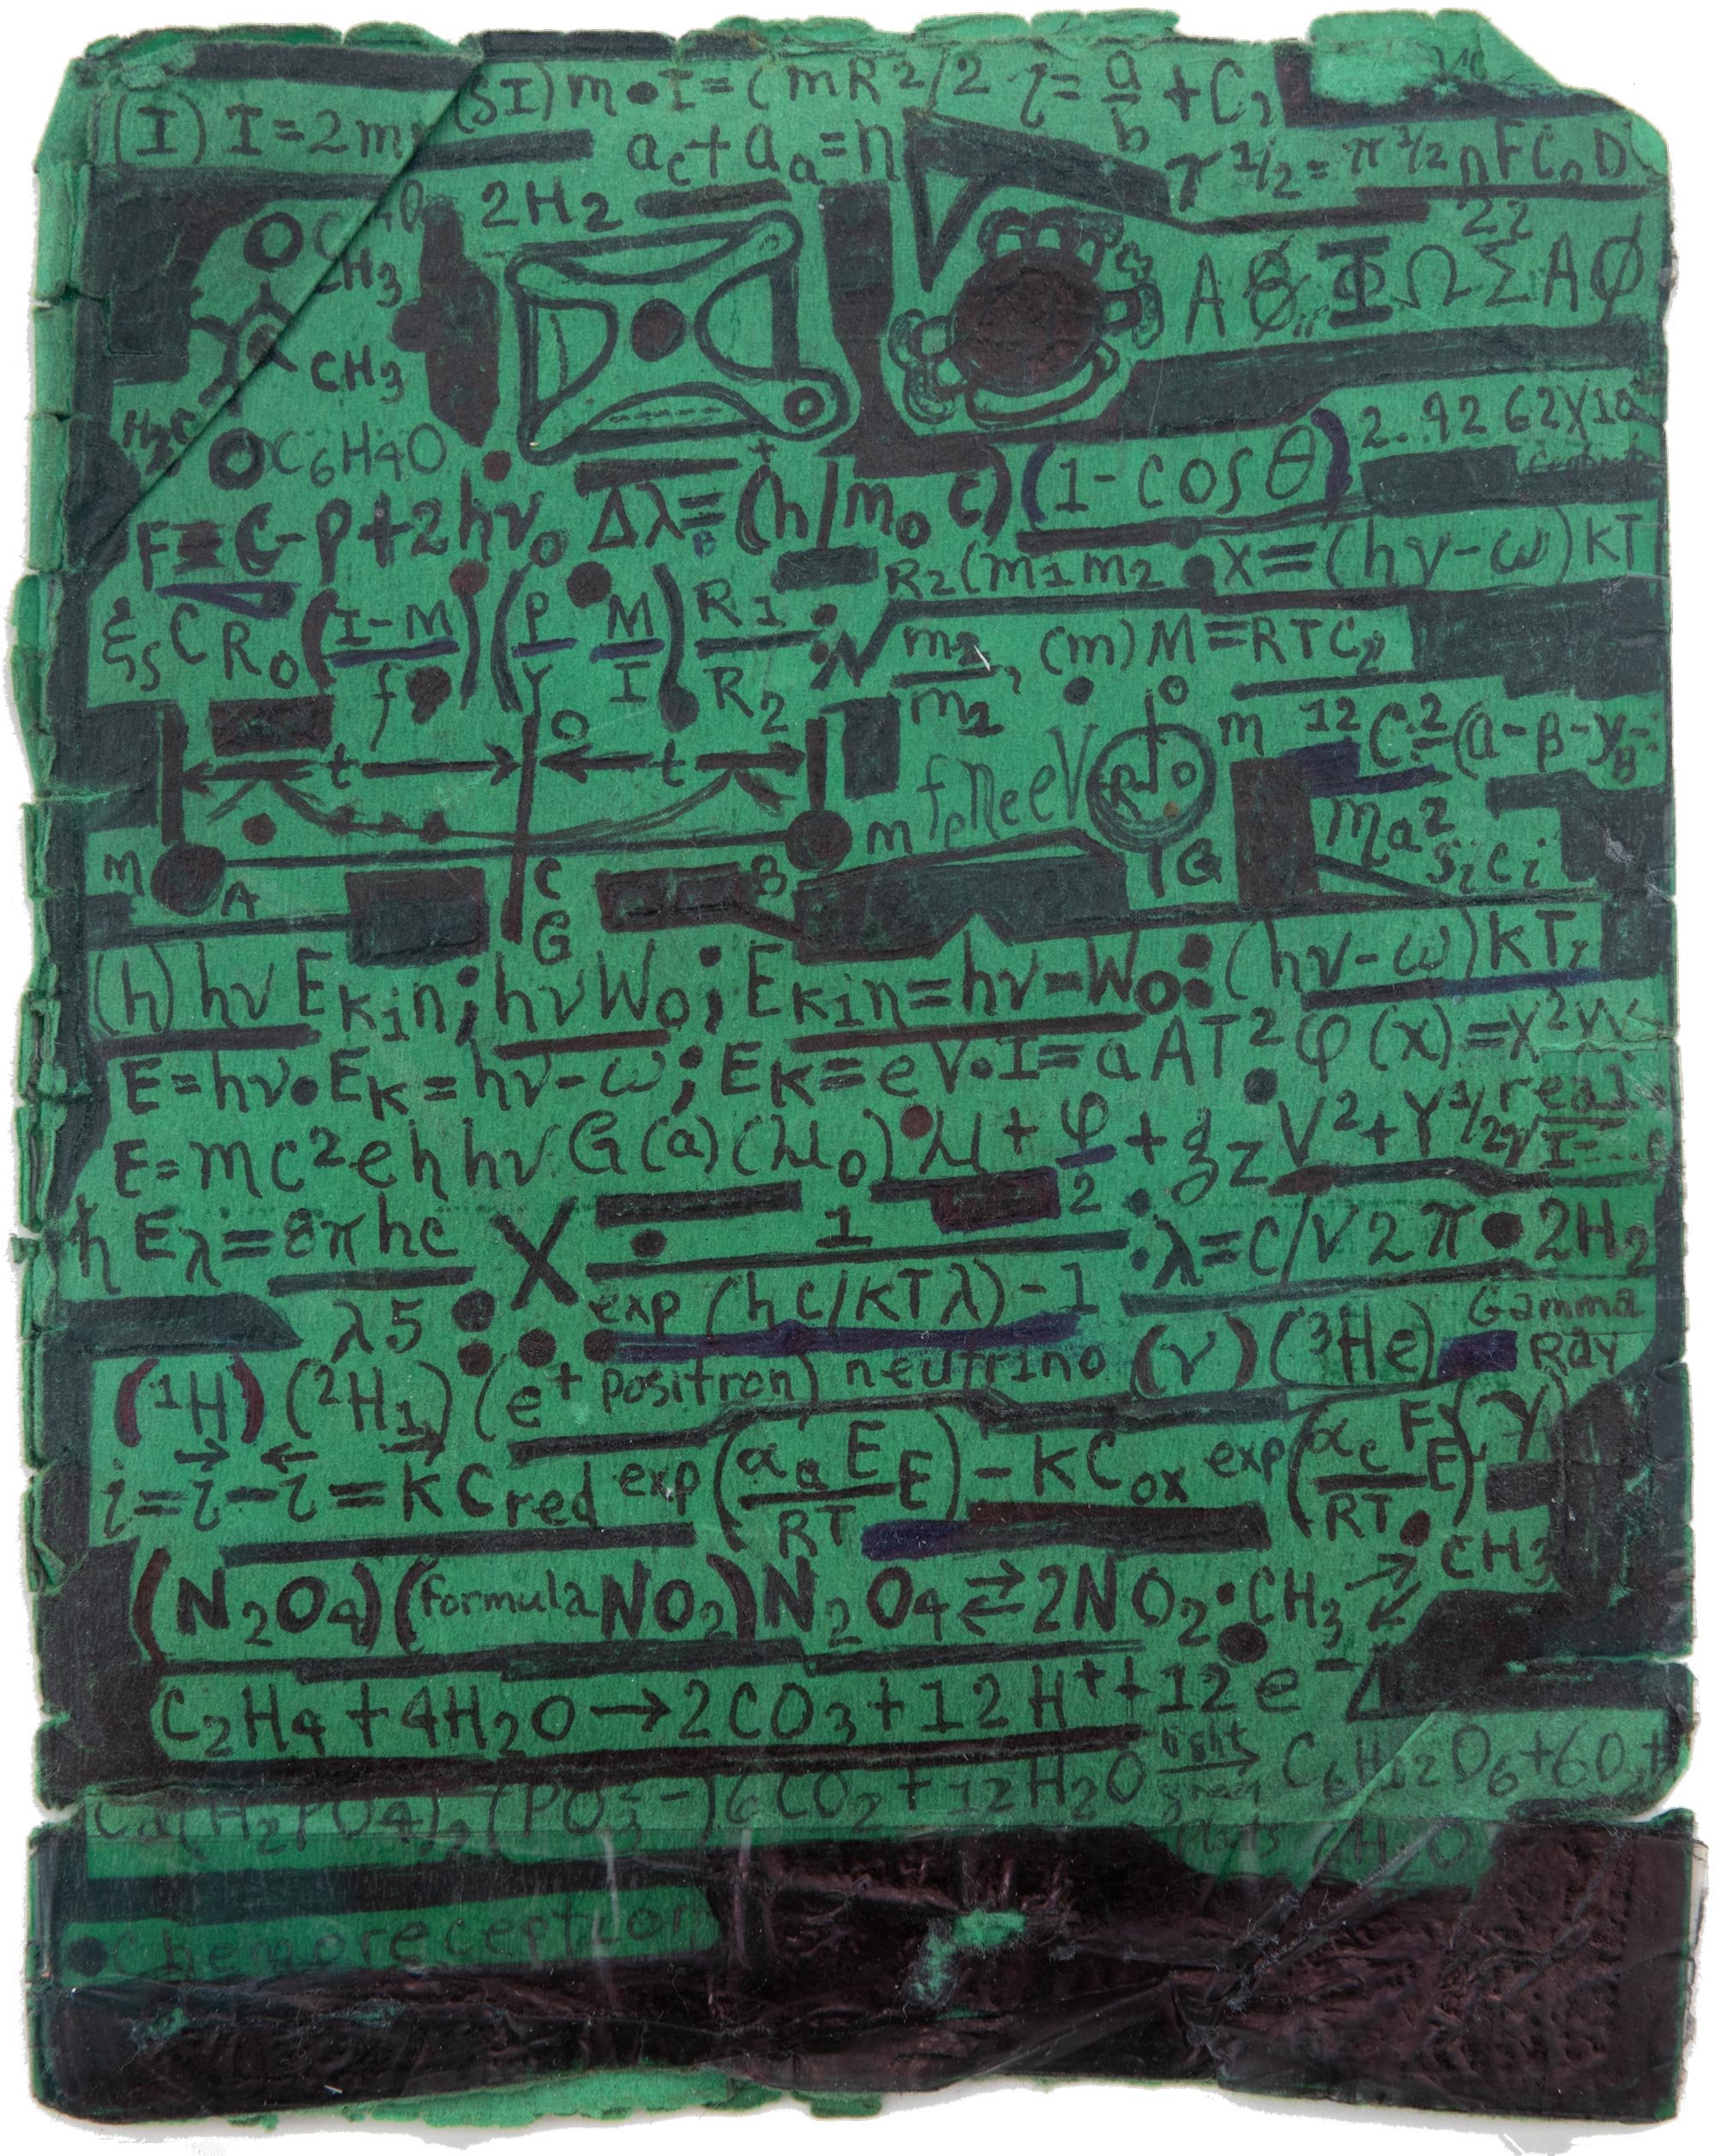 (I) I=2m (SI) m•I=(mR²/2 τ= a/b +C,
a_c+a_a=n
τ^1/2=π^1/2 nFC₀D
2H₂
22
CH₃
A Φ Ω Σ A Ø
CH₃
H₃C
OC₆H4O
F=C-P+2hν₀ Δλ=(h/m₀c)(1-cosθ)
R₂(m₁m₂•x=(hν-ω)kT
ξ_s C R₀ (I-M/f) (P/Y M/I) R₁/R₂ : √ m₂/m₁, (m) M=RTC₂
O t t O m ¹²C
R O
ma²
S_i C_i
m A C B m
G G
(h) hν E_Kin; hν W₀; E_Kin=hν-W₀: (hν-ω)kT,
E=hν•E_K=hν-ω; E_K=eV•I=aAT² φ(x)=x²
E=mc²ehhν G(a)(μ₀)•μ+φ/2+g_z V²+Y^1/2 real
ħ E_λ=8πhc/λ5 : X • 1/exp(hc/kTλ)-1 :λ=C/V2π•2H₂
Gamma
Ray
(¹H) (²H₁) (e⁺positron) neutrino (ν) (³He)
i=i-i=KC_red exp(α_a E/RT E)-KC_ox exp(α_c F/RT E) γ
(N₂O₄)(formulaNO₂)N₂O₄⇄2NO₂•CH₃ CH₃
C₂H₄+4H₂O→2CO₃+12H⁺+12e⁻Δ
Ca(H₂PO4)₂(PO₃-)6CO₂+12H₂O light → C₆H12O₆+6O₂+
green
plants 6H₂O
•Chemoreception